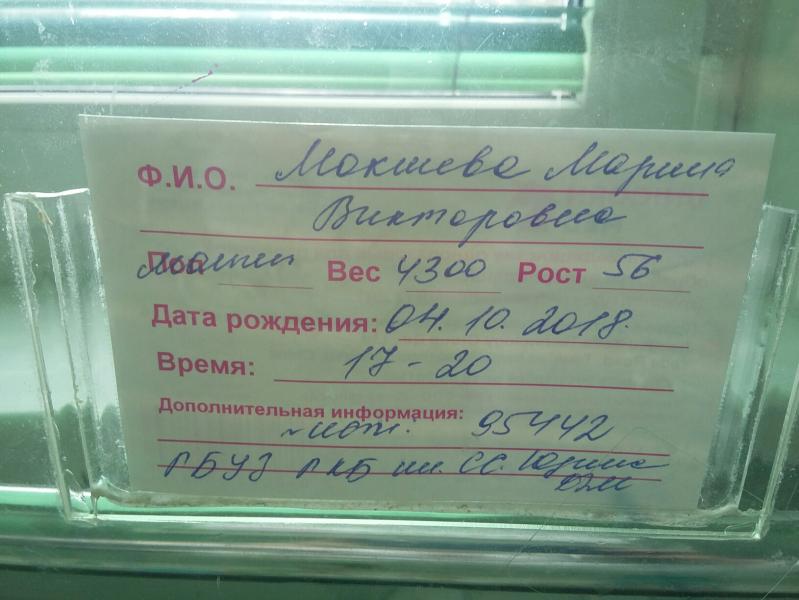 Ф.И.О. Мокшева Марина
Викторовна
Пол мальч Вес 4300 Рост 56
Дата рождения: 04.10.2018.
Время: 17-20
Дополнительная информация:
ист. 95442
ГБУЗ ГКБ им. С.С. Юдина
ДЗМ